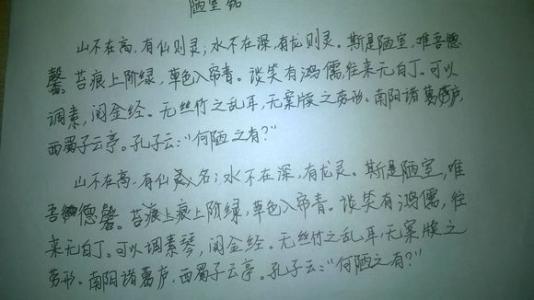 陋室铭
山不在高,有仙则灵;水不在深,有龙则灵。斯是陋室,唯吾德
馨。苔痕上阶绿,草色入帘青。谈笑有鸿儒,往来无白丁。可以
调素,阅金经。无丝竹之乱耳,无案牍之劳形。南阳诸葛庐,
西蜀子云亭。孔子云:“何陋之有?”
山不在高,有仙名;水不在深,有龙灵。斯是陋室,唯
吾德馨。苔痕上痕上阶绿,草色入帘青。谈笑有鸿儒,往
来无白丁。可以调素琴,阅金经。无丝竹之乱耳,无案牍之
劳形。南阳诸葛庐,西蜀子云亭。孔子云:“何陋之有?”